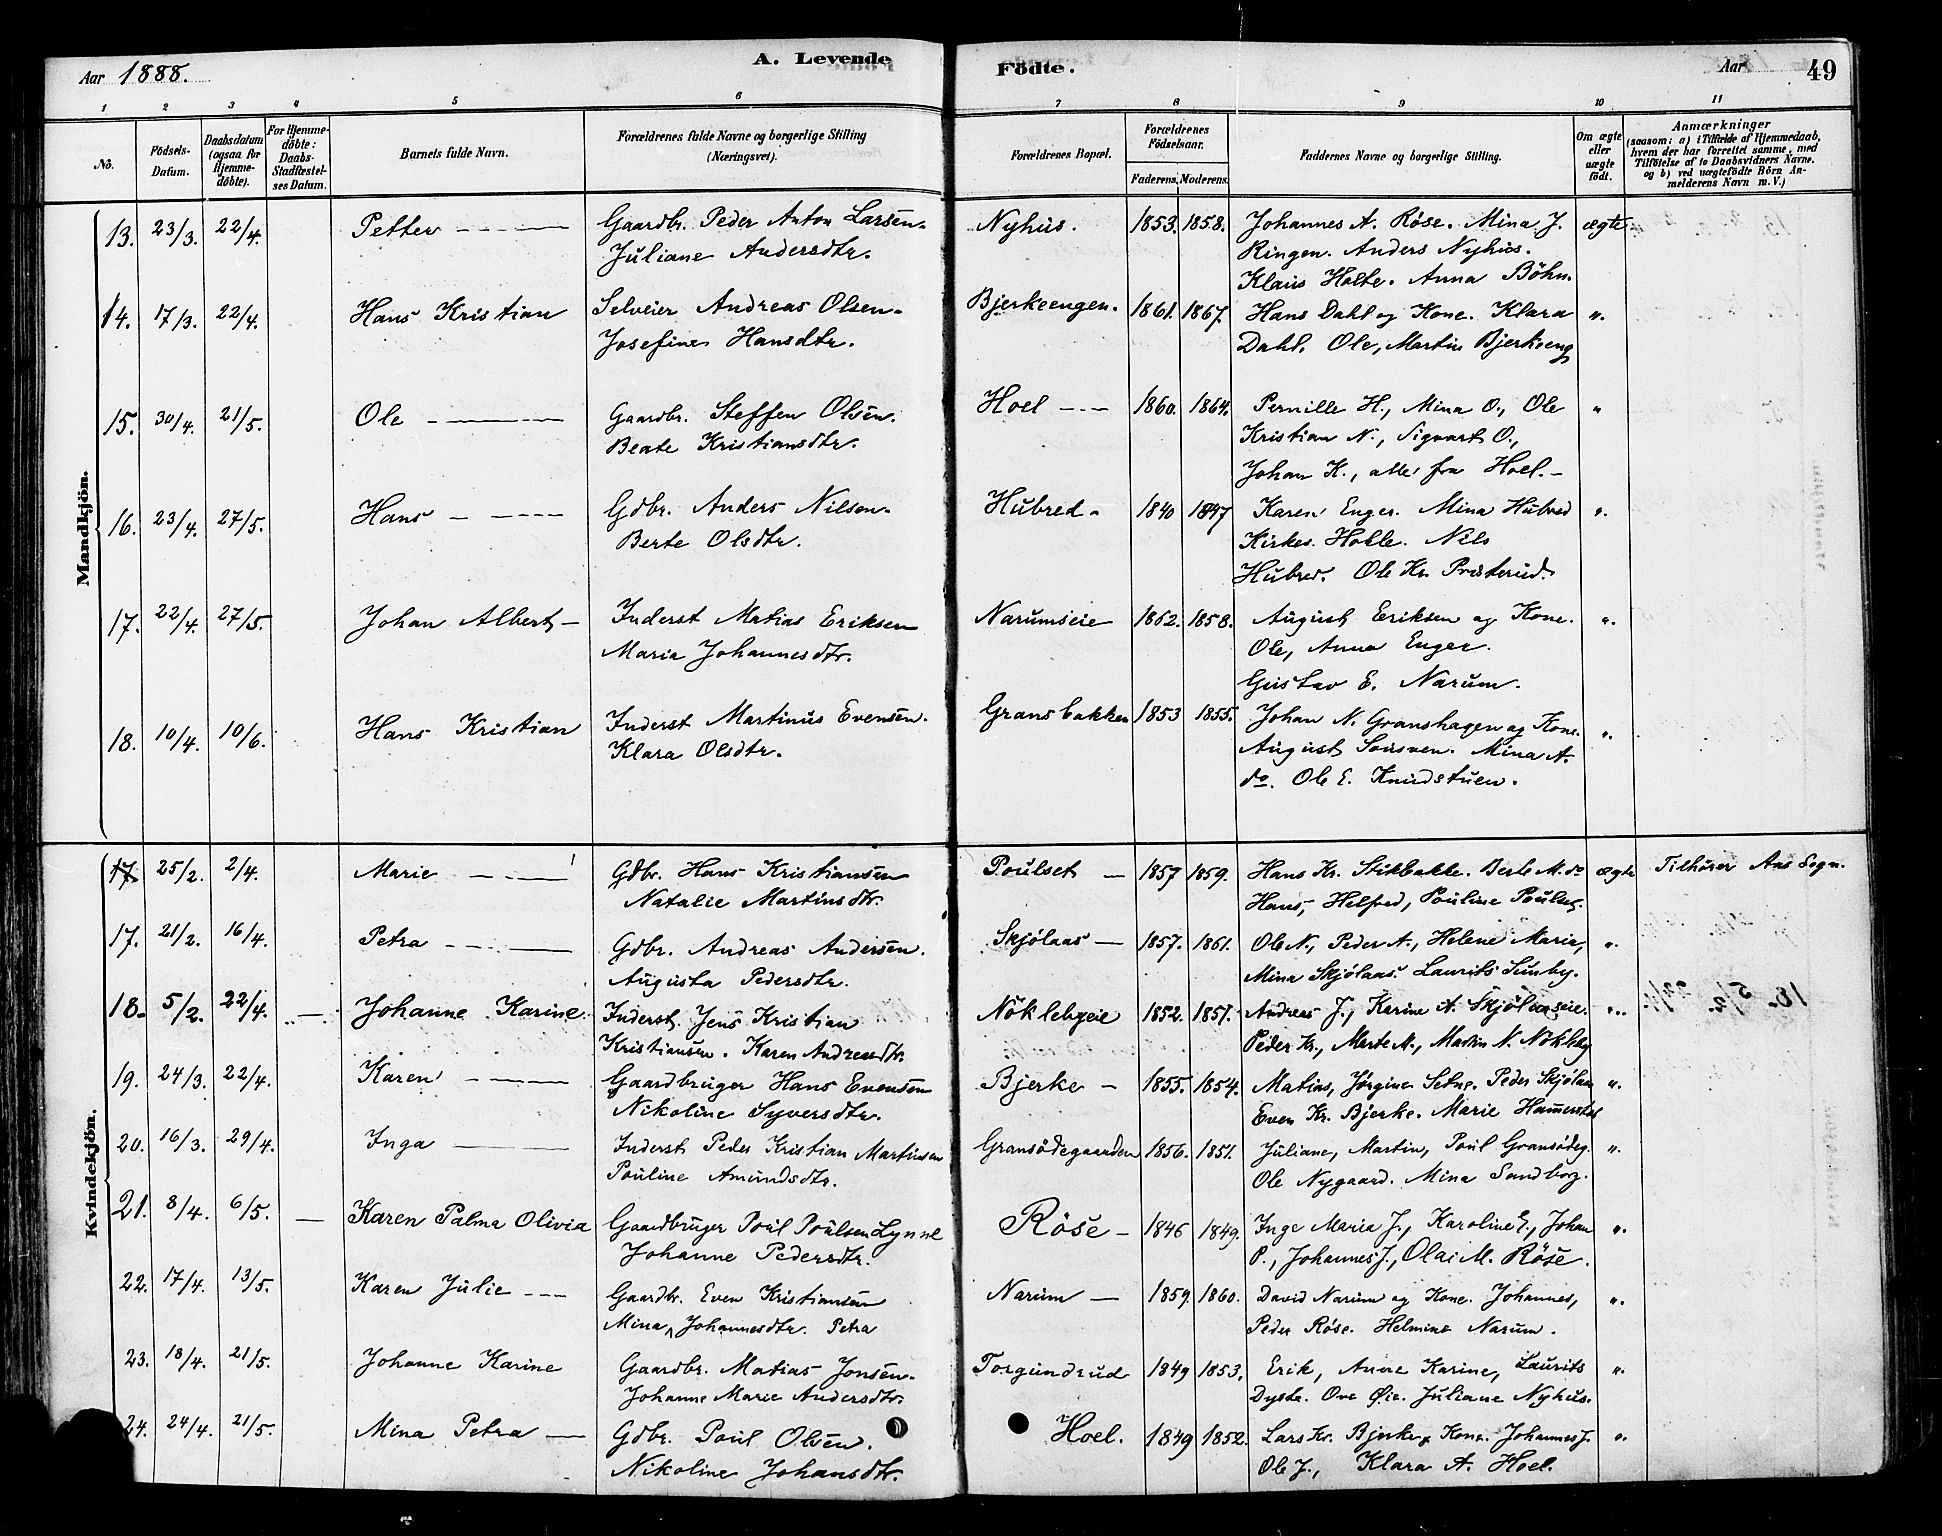 Aar 1888.
A. Levende
Födte.
Aar
49
1 2 3 4 5 6 7 8 9 10 11
No.
Födsels-Datum.
Daabsdatum (ogsaa for Hjemme-döbte).
For Hjemme-döbte: Daabs-Stadfæstel-ses Datum.
Barnets fulde Navn.
Forældrenes fulde Navne og borgerlige Stilling (Næringsvei).
Forældrenes Bopæl.
Forældrenes Födselsaar.
Faderens. Moderens.
Faddernes Navne og borgerlige Stilling.
Om ægte eller uægte födt.
Anmærkninger
(saasom: a) i Tilfælde af Hjemmedaab,
hvem der har forrettet samme, med
Tilföielse af to Daabsvidners Navne,
og b) ved uægtefödte Börn An-
melderens Navn m. V.)
Mandkjön.
13. 23/3. 22/4. Petter Gaardbr. Peder Anton Larsen. Nyhus. 1853. 1858. Johannes A. Röse. Mina J. ægte
Juliane Andersdtr. Ringen. Anders Nyhus.
Klaus Holte. Anna Böhn.
14. 17/3. 22/4. Hans Kristian Selveier Andreas Olsen. Bjerkeengen. 1861. 1867. Hans Dahl og Kone. Klara ".
Josefine Hansdtr. Dahl. Ole, Martin Bjerkeeng
15. 30/4. 21/5. Ole Gaardbr. Steffen Olsen. Hoel 1860. 1864. Pernille H., Mina O., Ole "
Beate Kristiansdtr. Kristian N., Sigvart O.,
Johan K., alle fra Hoel.
16. 23/4. 27/5. Hans Gdbr. Anders Nilsen. Hubred. 1840 1847 Karen Enger. Mina Hubred ".
Berte Olsdtr. Kirkes. Holle. Nils
Hubred. Ole Kr. Presterud.
17. 22/4. 27/5. Johan Albert Inderst Matias Eriksen Narumseie 1862. 1858. August Eriksen og Kone. ".
Maria Johannesdtr. Ole, Anna Enger.
Gustav E. Narum.
18. 10/4. 10/6. Hans Kristian Inderst Martinus Evensen. Gransbakken 1853 1855. Johan N. Granshagen og Kone. ".
Klara Olsdtr. August Sousven. Mina A.
do. Ole E. Knudstuen.
Kvindekjön.
17. 25/2. 2/4. Marie Gdbr. Hans Kristiansen Poulset 1857 1859. Hans Kr. Stikbakke. Berte M. do ægte Tilhörer Aas Sogn.
Natalie Martinsdtr. Hans, Helfred, Pouline Poulset.
17. 21/2. 16/4. Petra Gdbr. Andreas Andersen. Skjölaas 1857. 1861. Ole N., Peder A., Helene Marie, ".
Augusta Pedersdtr. Mina Skjölaas. Laurits Sunby.
18. 5/2. 22/4. Johanne Karine Inderst. Jens Kristian Nöklebyeie 1852. 1857. Andreas J., Karine A. Skjölaaseie. "
Kristiansen. Karen Andreasdtr. Peder Kr., Marte M., Martin N. Nökleby
19. 24/3. 22/4. Karen Gaardbruger Hans Evensen Bjerke 1855. 1854. Matias, Jörgine Setne. Peder Skjölaas ".
Nikoline Syversdtr. Even Kr. Bjerke. Marie Hammerstad
20. 16/3. 29/4. Inga Inderst Peder Kristian Martinsen Gransödegaarden 1856. 1851. Juliane, Martin, Poul Gransödeg. ".
Pouline Amundsdtr. Ole Nygaard. Mina Sandborg.
21. 8/4. 6/5. Karen Palma Olivia Gaardbruger Poul Poulsen Lynne Röse 1846 1849. Inge Maria J., Karoline E., Johan ".
Johanne Pedersdtr. P., Johannes J., Olai M. Röse.
22. 17/4. 13/5. Karen Julie Gaardbr. Even Kristiansen Narum 1859. 1860. David Narum og Kone. Johannes, ".
Mina Johannesdtr. Petra Peder Röse. Helmine Narum.
23. 18/4. 21/5. Johanne Karine Gaardbr. Matias Jonsen. Torgundrud 1849 1853. Erik, Anne Karine, Laurits ".
Johanne Marie Andersdtr. Dyste. Ove Øie. Juliane Nyhus.
24. 24/4. 21/5. Mina Petra Gdbr. Poul Olsen. Hoel. 1849 1852. Lars Kr. Bjerke & Kone. Johannes J. ".
Nikoline Johansdtr. Ole J., Klara A. Hoel.